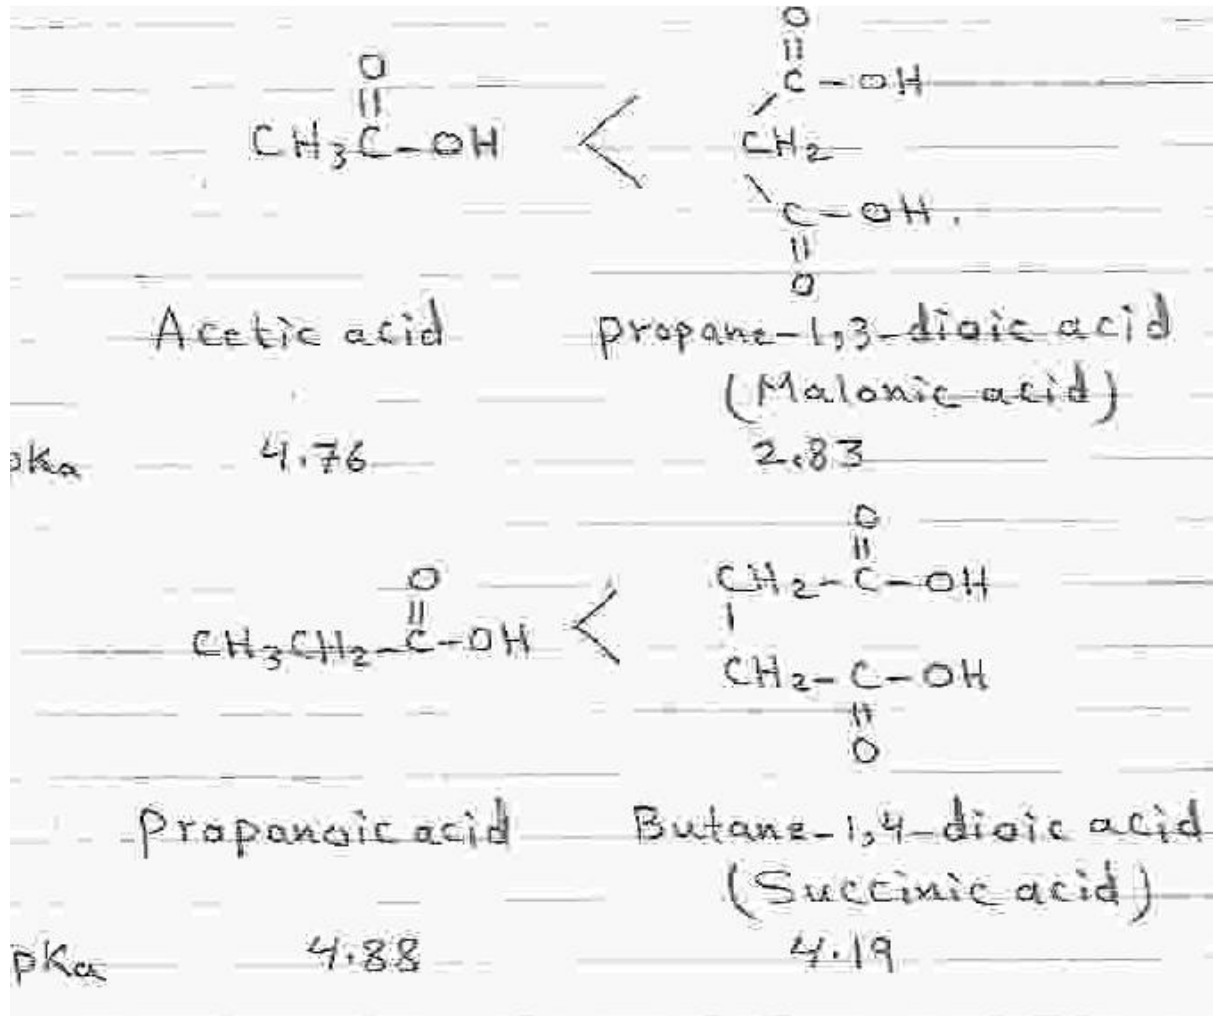 O
||
CH3C-OH < 
O
||
C-OH
/
CH2
\
C-OH.
||
O
Acetic acid propane-1,3-dioic acid
(Malonic acid)
pKa 4.76 2.83
O
||
CH3CH2-C-OH <
O
||
CH2-C-OH
|
CH2-C-OH
||
O
Propanoic acid Butane-1,4-dioic acid
(Succinic acid)
pKa 4.88 4.19